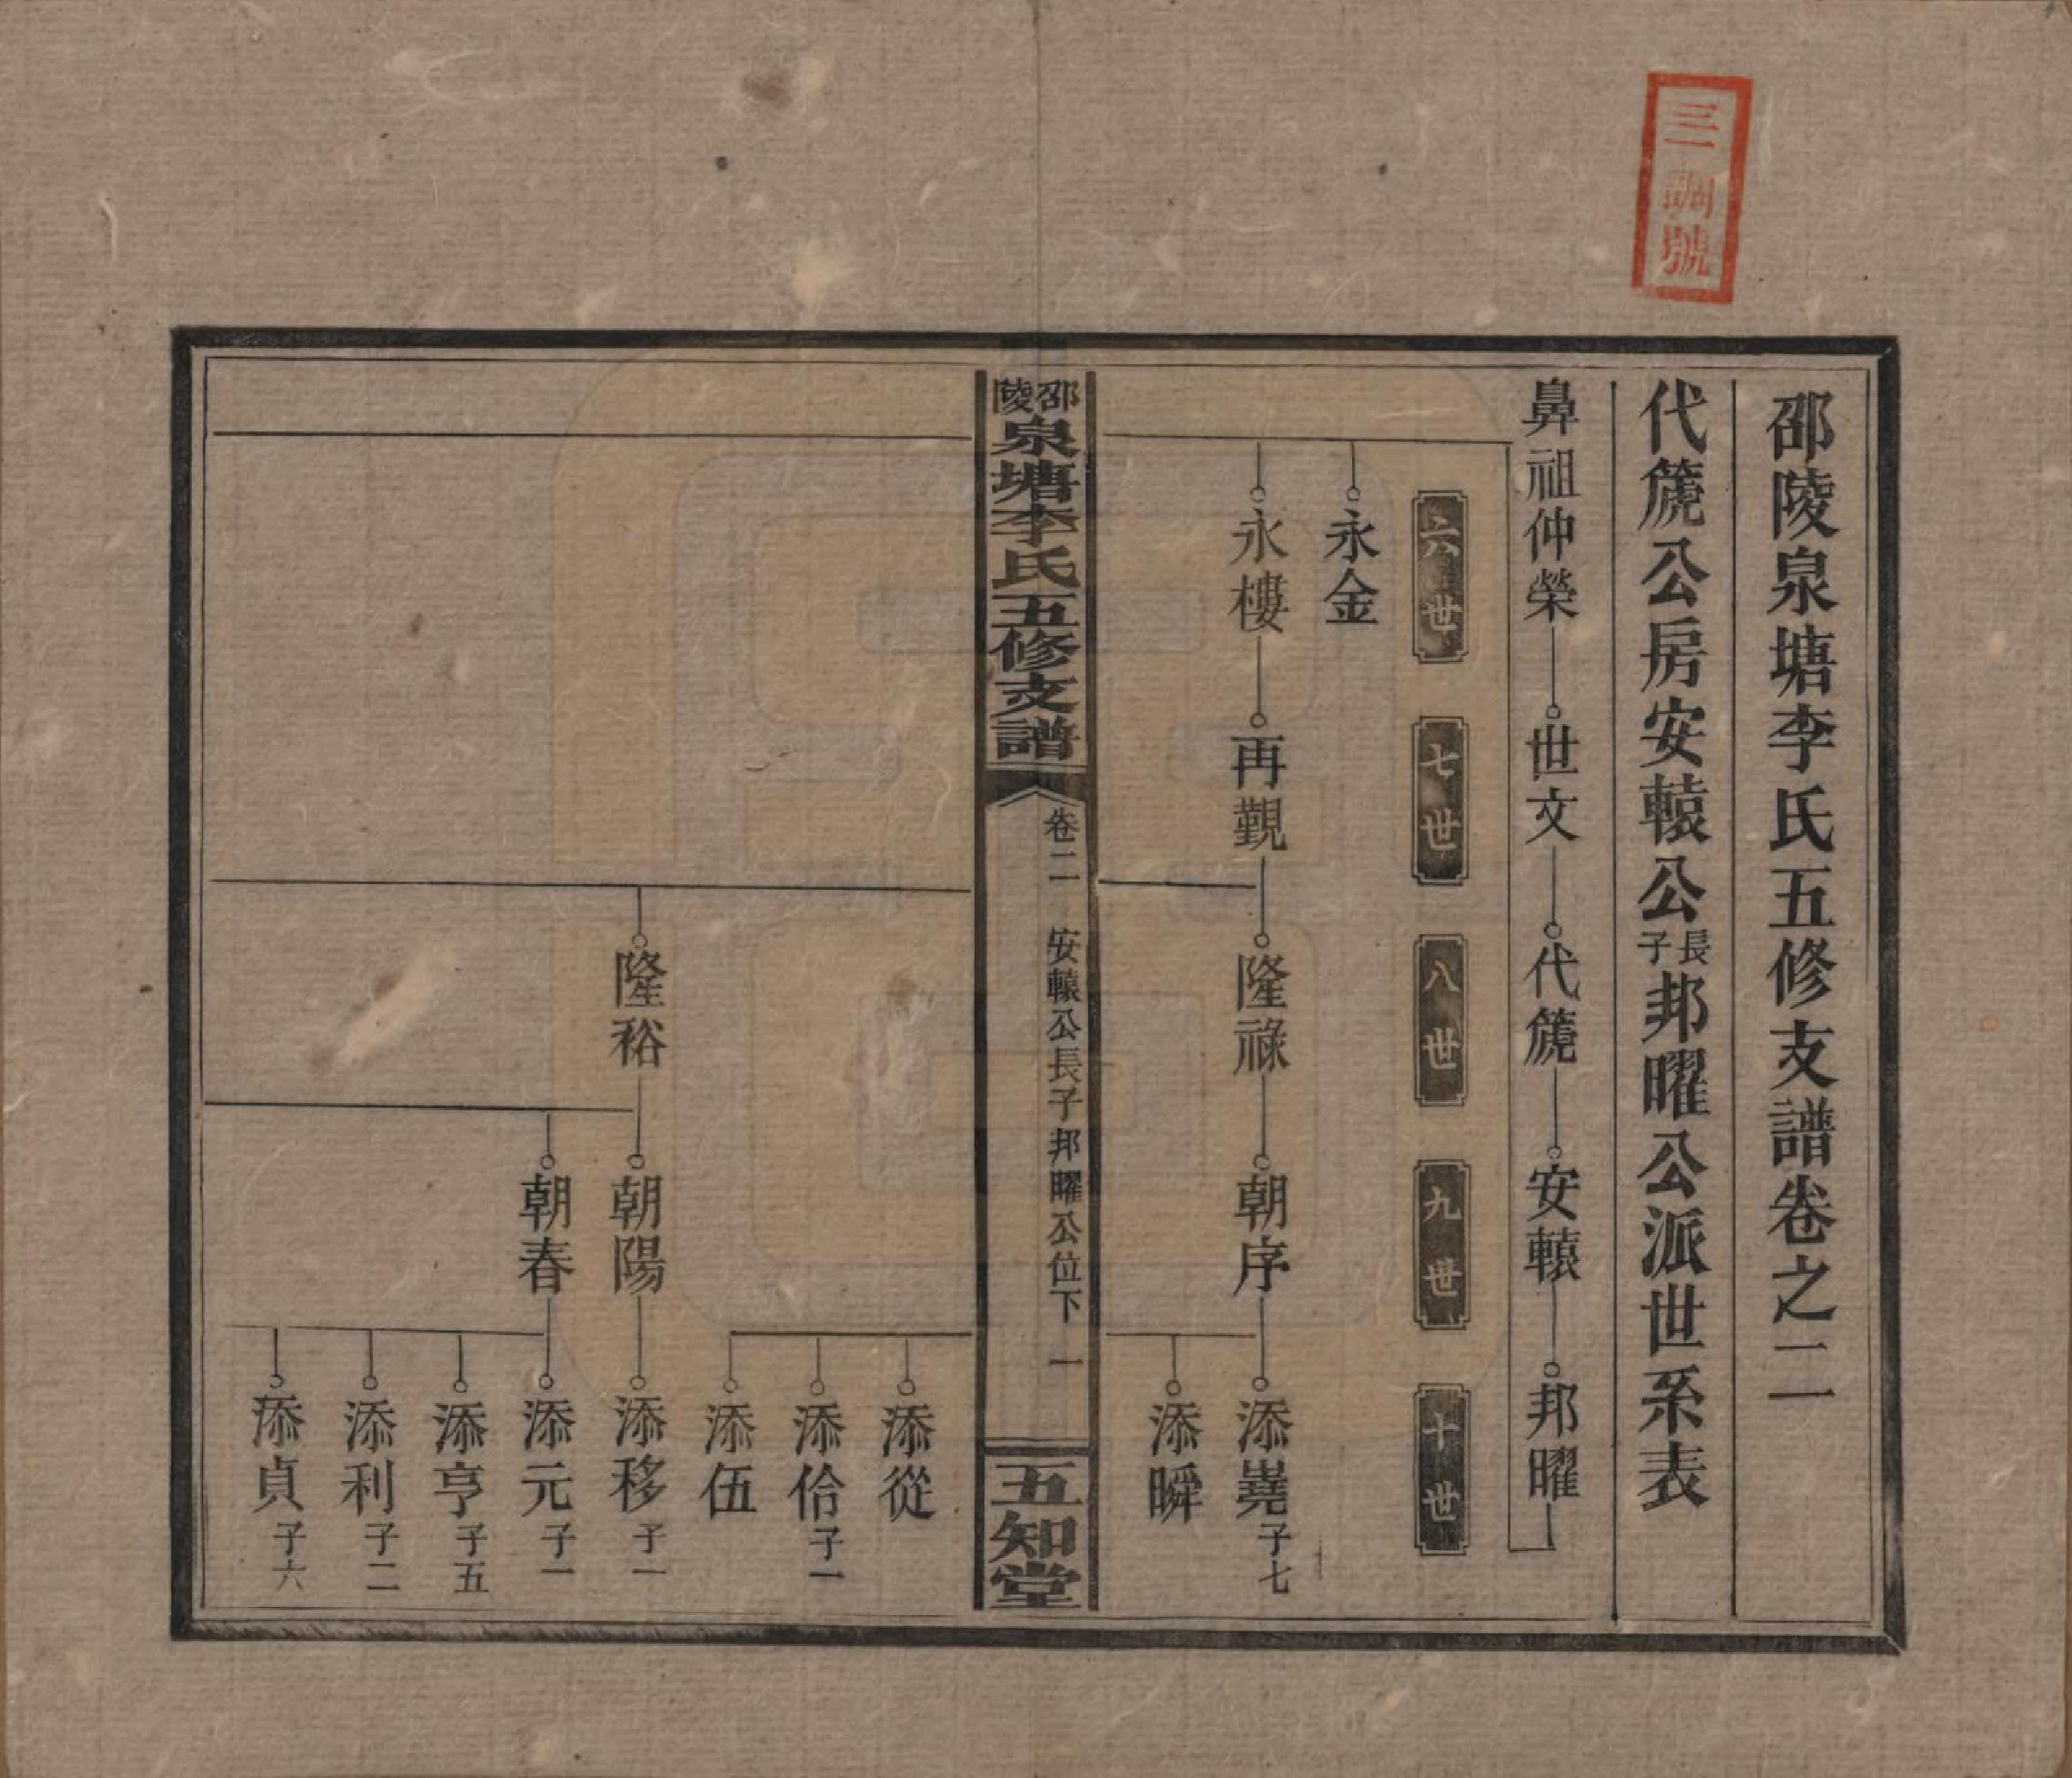 三調號
邵陵泉塘李氏五修支譜卷之二
代篪公房安轅公長子邦曜公派世系表
鼻祖仲榮 世文 代篪 安轅 邦曜
六世 七世 八世 九世 十世
永金
永樓 再觀 隆祿 朝序 添嶤 子七
添瞬
邵陵泉塘李氏五修支譜 卷二 安轅公長子邦曜公位下 一 五知堂
添從
添佮 子一
添伍
隆裕 朝陽 添移 子一
朝春 添元 子一
添亨 子五
添利 子二
添貞 子六